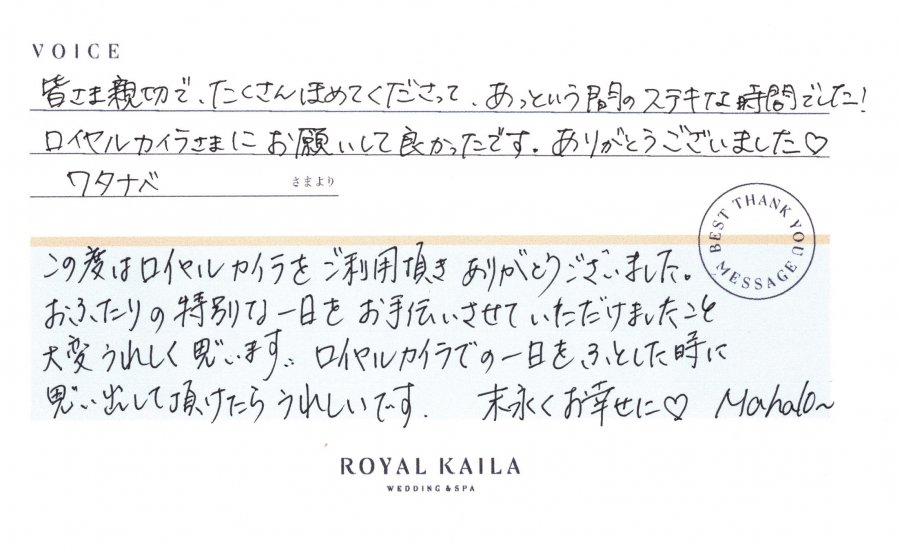 VOICE
皆さま親切で、たくさんほめてくださって、あっという間のステキな時間でした!
ロイヤルカイラさまにお願いして良かったです。ありがとうございました♡
ワタナベ さまより
BEST THANK YOU MESSAGE
この度はロイヤルカイラをご利用頂きありがとうございました。
おふたりの特別な一日をお手伝いさせていただけましたこと
大変うれしく思います。ロイヤルカイラでの一日をふとした時に
思い出して頂けたらうれしいです. 末永くお幸せに♡ Mahalo~
ROYAL KAILA
WEDDING & SPA